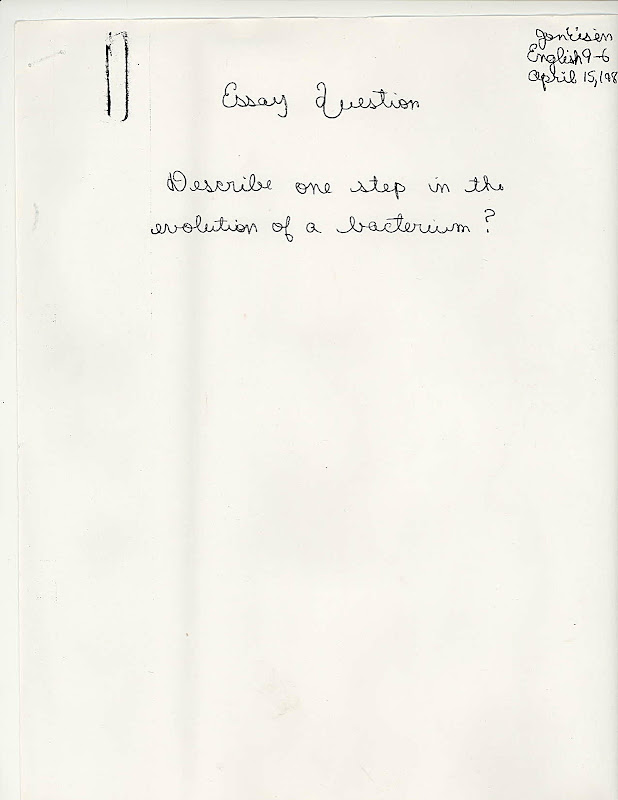 English 9-6
April 15, 198
Essay Question
Describe one step in the
evolution of a bacterium?